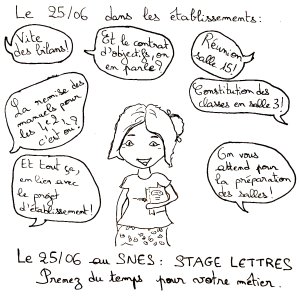 Le 25/06 dans les établissements:
Vite
des bilans!
Et le contrat
d'objectifs, on
en parle?
Réunion
salle 15!
La remise des
manuels pour
les
c'est où?
Constitution des
classes en salle 3!
Et tout ça,
en lien avec
le projet
d'établissement!
On vous
attend pour
la préparation
des salles!
Le 25/06 au SNES: STAGE LETTRES
Prenez du temps pour votre métier.